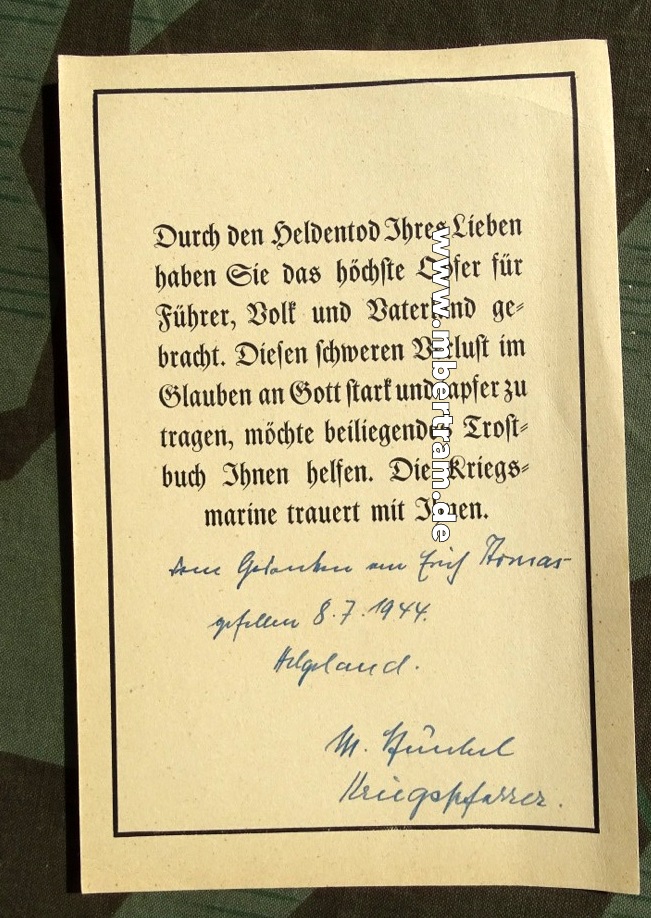 Durch den Heldentod Ihres Lieben
haben Sie das höchste Opfer für
Führer, Volk und Vaterland ge-
bracht. Diesen schweren Verlust im
Glauben an Gott stark und tapfer zu
tragen, möchte beiliegendes Trost-
buch Ihnen helfen. Die Kriegs-
marine trauert mit Ihnen.
zum Gedenken an Erich
gefallen 8.7.1944.
Helgoland.
M.
Kriegspfarrer.
www.mbertram.de